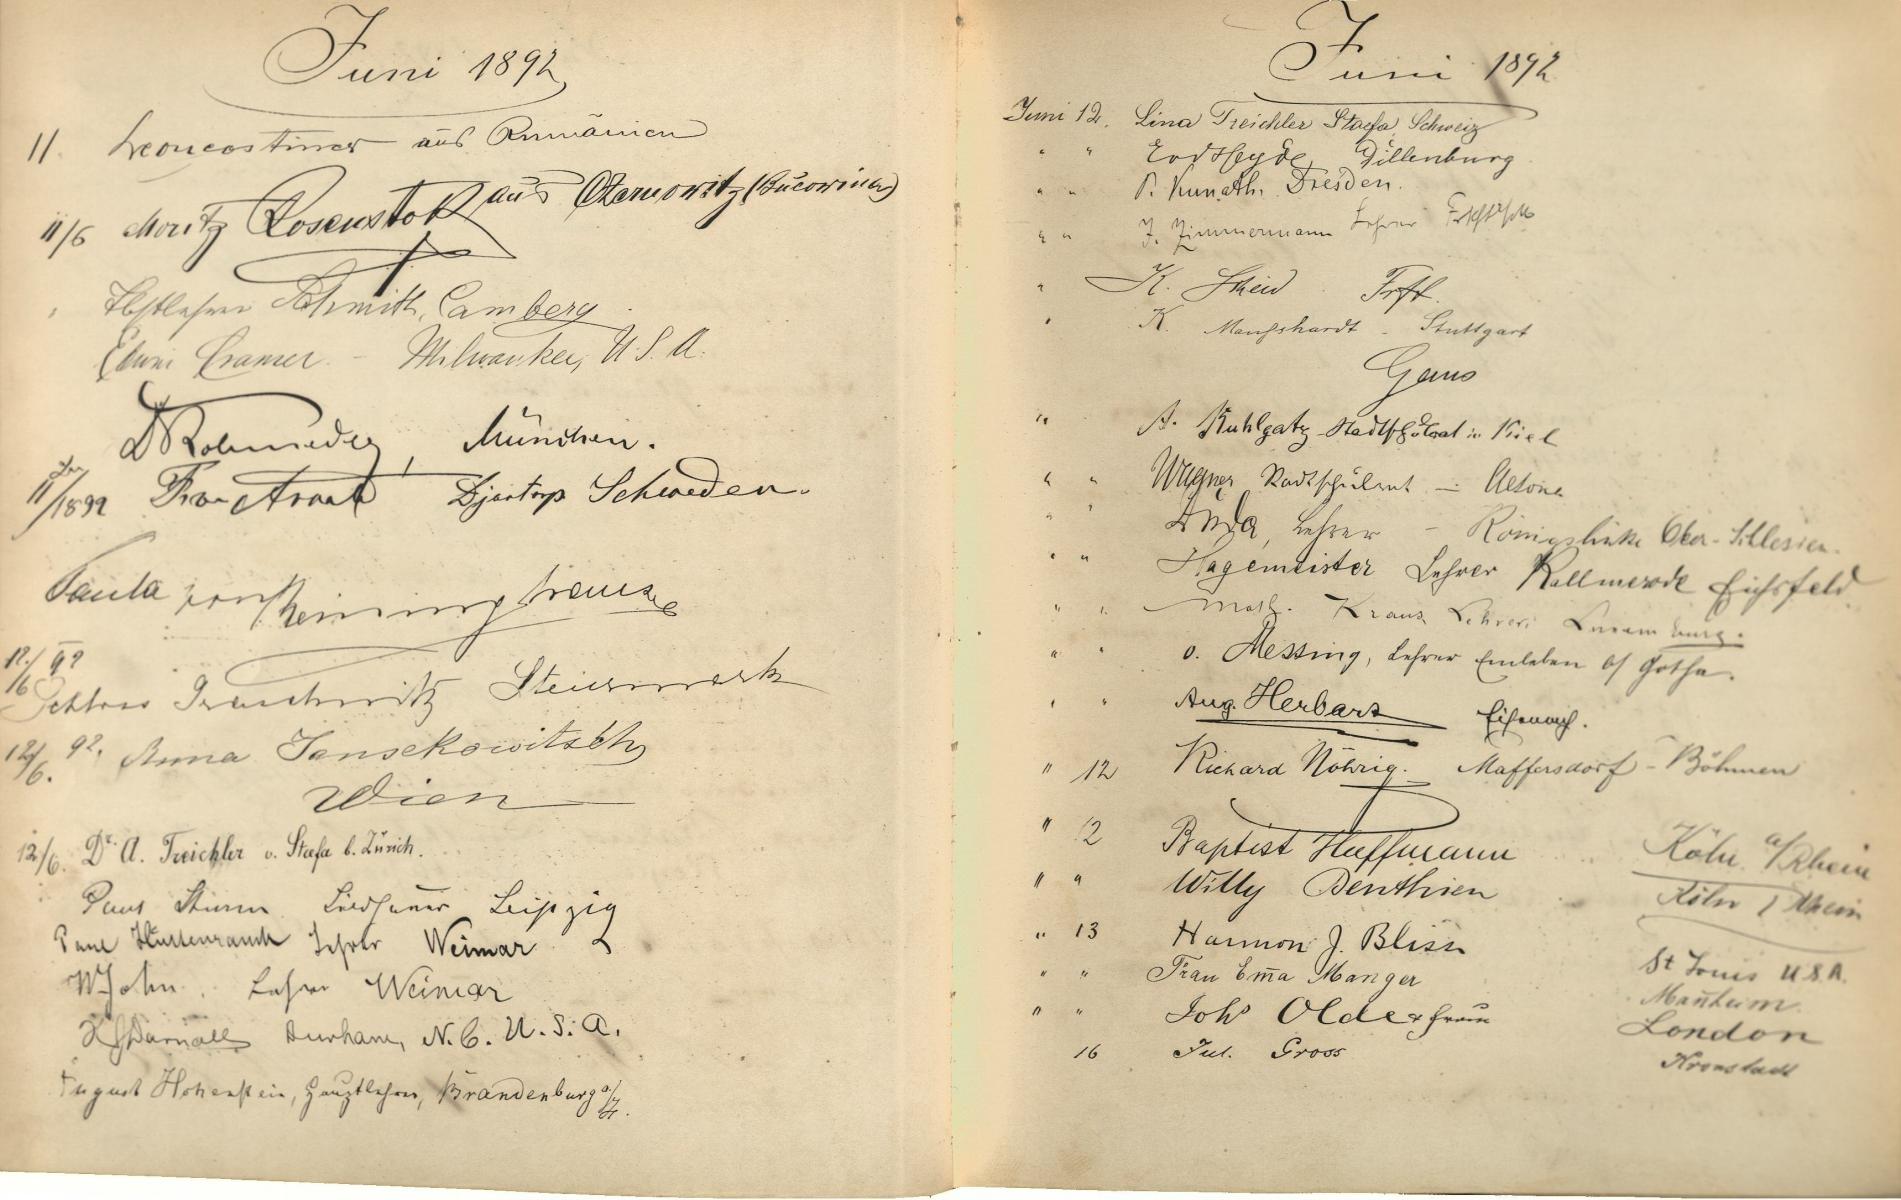 Juni 1892
11. aus Rumänien
11/6 Moritz Rosenstok aus Czernowitz (Bucowina)
" Schmitt, Camberg
Edwin Cramer - Milwaukee, U.S.A.
München.
11/1892 Schweden.
Paula von
12./6 92
Schloss Steiermark
12/6. 92. Anna Jansekowitsch
Wien
12/6. Dr. A. Treichler v. Staefa b. Zürich.
Paul Sturm Leipzig
Paul Lehrer Weimar
W John. Lehrer Weimar
Durham, N.C. U.S.A.
August Hohenstein, Hauptlehrer, Brandenburg a/H.
Juni 1892
Juni 12. Lina Treichler Staefa, Schweiz
" " Dillenburg
" " P. Kunath. Dresden.
" " J. Zimmermann Lehrer
" K. Scheid Frft.
" K. Mangshardt - Stuttgart
Gans
" A. Kuhlgatz Stadtschulrat in Kiel
" " Wagner Stadtschulrat - Altona
" " Lehrer - Ober-Schlesien.
" " Hagemeister Lehrer Kallmerode Eichsfeld
" " Math. Kraus Lehrer Luxemburg.
" " O. Messing, Lehrer Emleben b/ Gotha.
" " Aug. Herbart Eisenach.
" 12 Richard Nöhrig. Maffersdorf - Böhmen
" 12 Baptist Hoffmann Köln a/Rhein
" " Willy Benthien Köln / Rhein
" 13 Harmon J. Bliss St Louis U.S.A.
" " Frau Em̅a Manger Man̅heim.
" " Johs Olde & Frau London
16 Jul. Gross Kronstadt